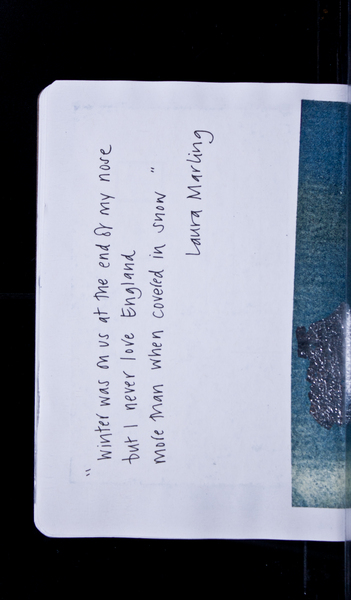 "winter was on us at the end of my nose
but I never love England
more than when covered in snow"
Laura Marling